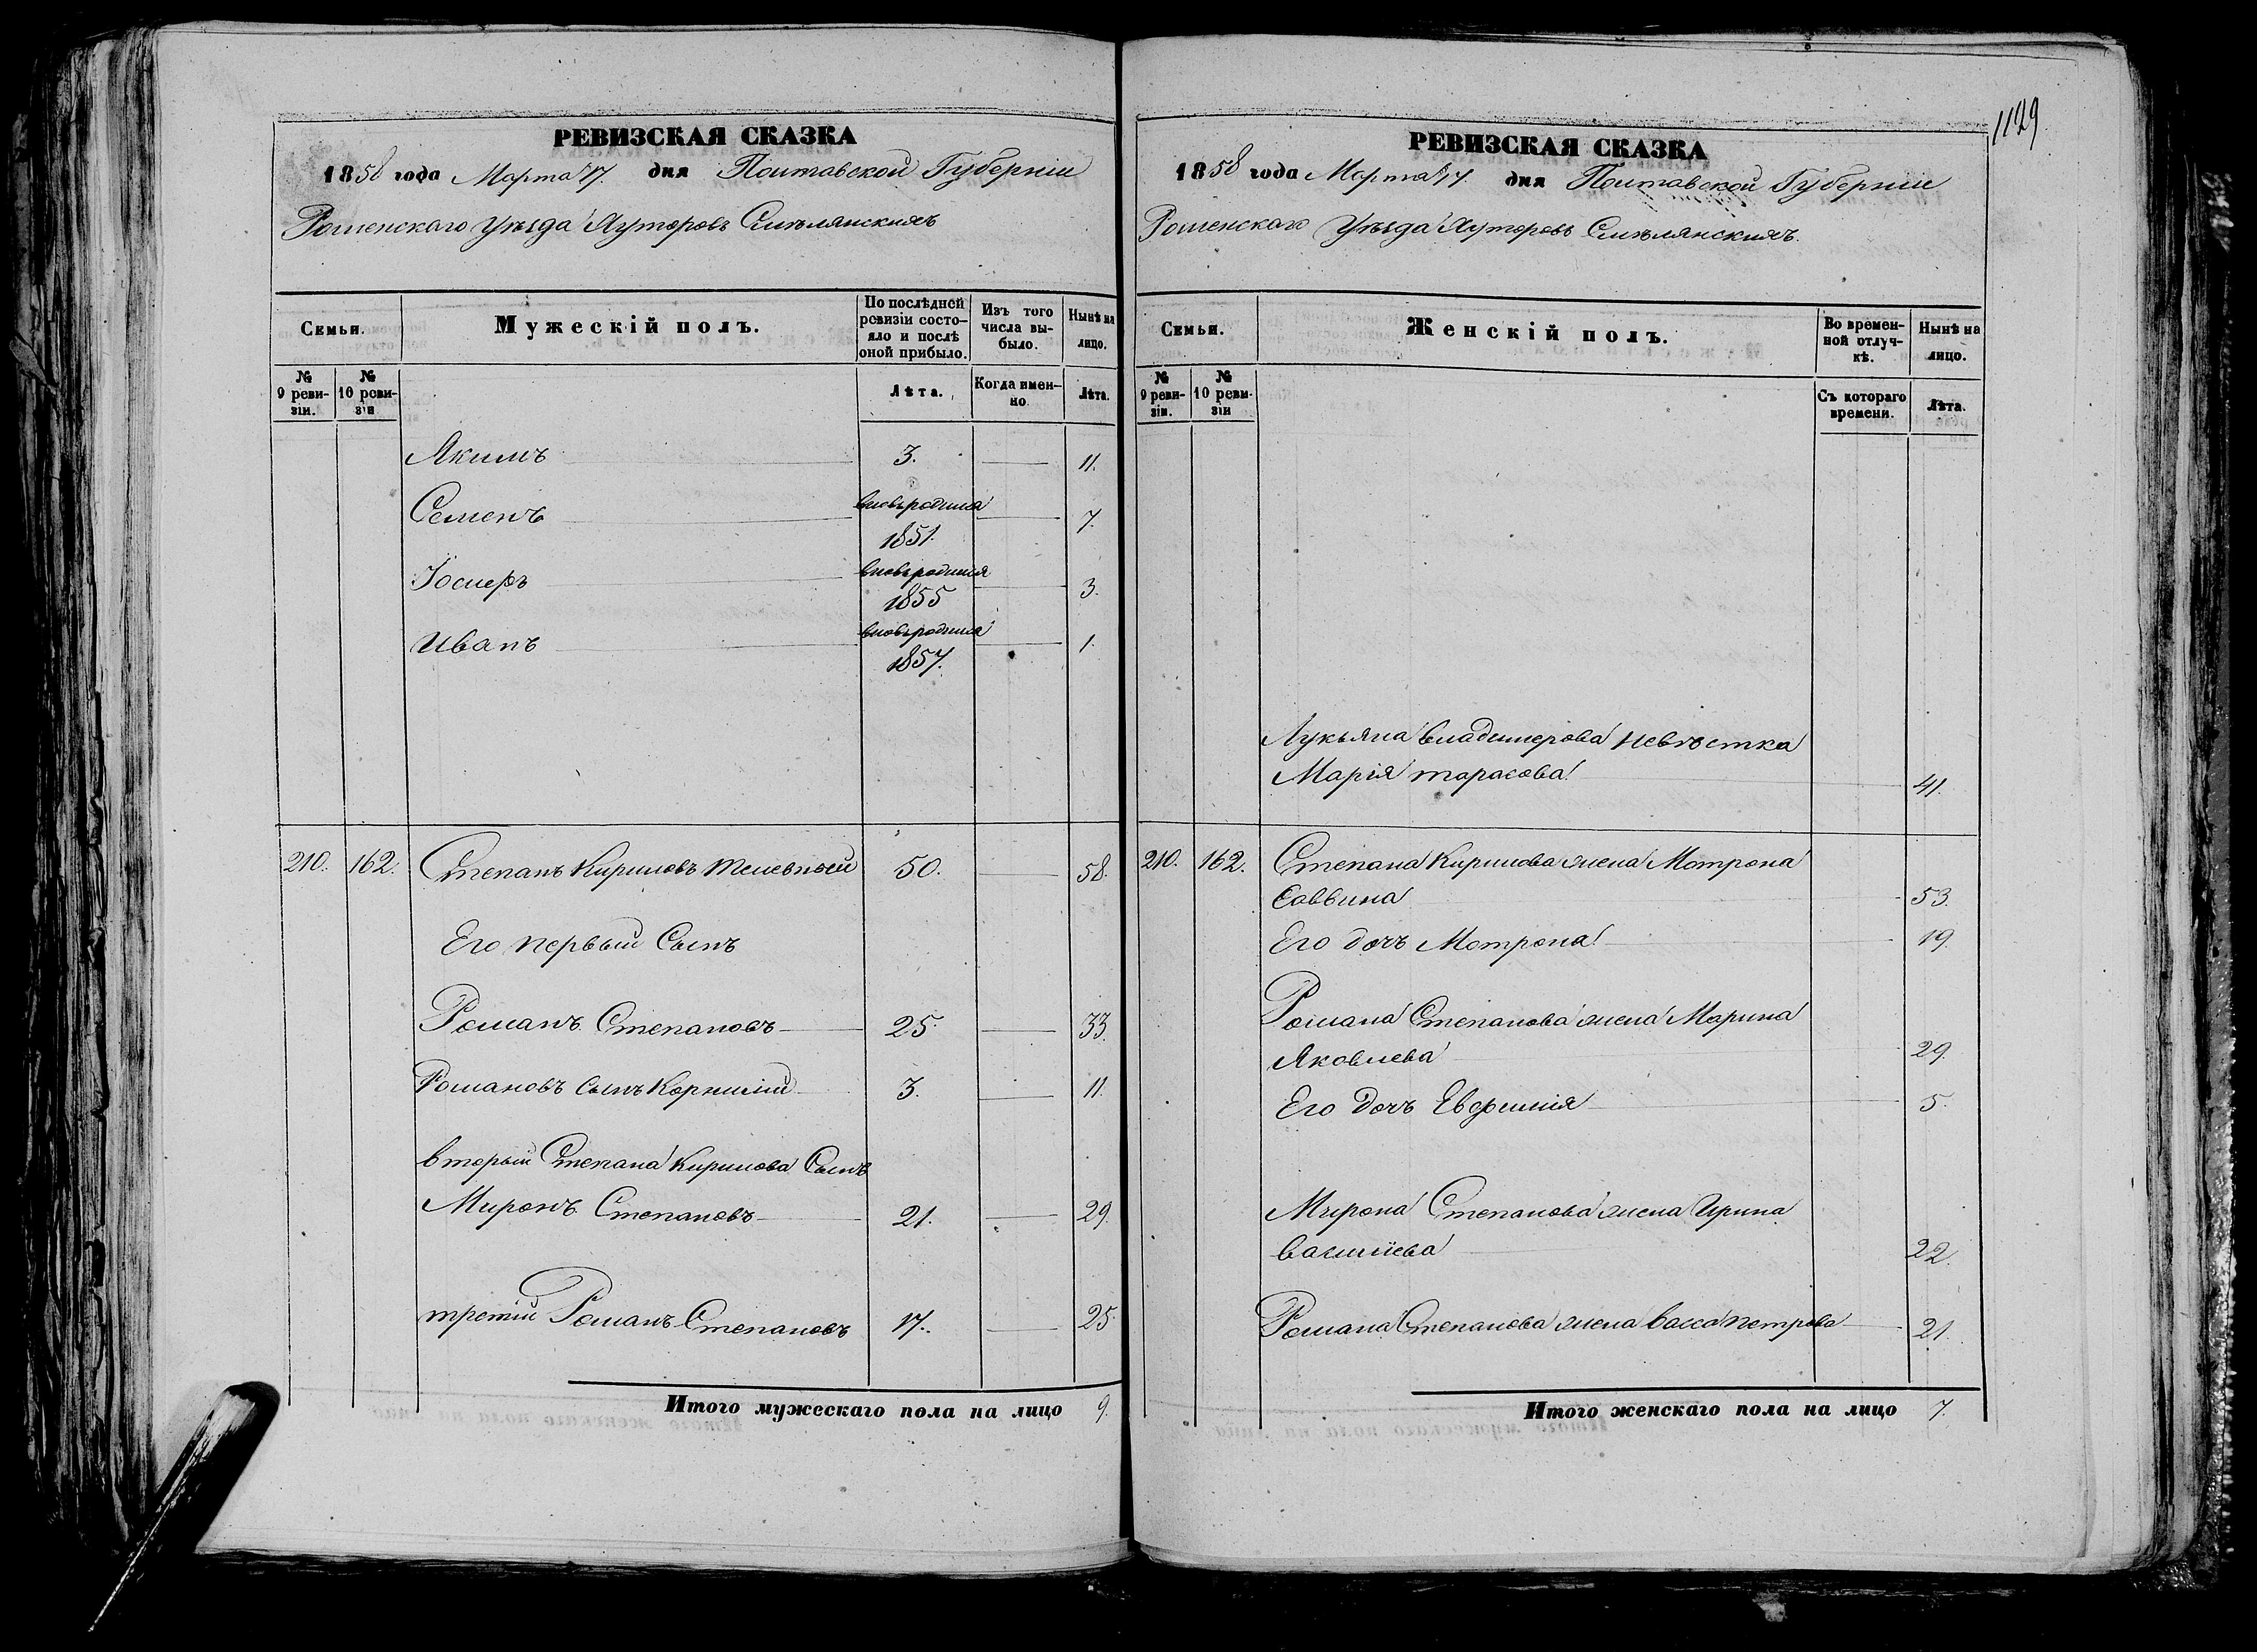 РЕВИЗСКАЯ СКАЗКА
1858 года Марта 17. дня Полтавской Губерніи
Роменскаго Уѣзда Хуторовъ Смѣлянскихъ
Семьи.
Мужескій полъ.
По послѣдней ревизіи состояло и послѣ оной прибыло.
Изъ того числа выбыло.
Нынѣ на лицо.
№ 9 ревизіи.
№ 10 ревизіи
Лѣта.
Когда именно
Лѣта.
Якимъ 3. 11.
Семенъ вновьродился 1851. 7.
Іосифъ вновьродился 1855 3.
Иванъ вновьродился 1857. 1.
210. 162. Степанъ Кириловъ 50. 58.
Его первый Сынъ
Романъ Степановъ 25. 33.
Романовъ сынъ Корнилій 3. 11.
вторый Степана Кирилова Сынъ
Миронъ Степановъ 21. 29.
третій Романъ Степановъ 17. 25.
Итого мужескаго пола на лицо 9.
1129
РЕВИЗСКАЯ СКАЗКА
1858 года Марта 17. дня Полтавской Губерніи
Роменскаго Уѣзда Хуторовъ Смѣлянскихъ.
Семьи.
Женскій полъ.
Во временной отлучкѣ.
Нынѣ на лицо.
№ 9 ревизіи.
№ 10 ревизіи
Съ котораго времени.
Лѣта.
Лукьяна владимерова невѣстка
Марія тарасова 41.
210. 162. Степана Кирилова жена Мотрона
Саввина 53.
Его дочъ Мотрона 19.
Романа Степанова жена Марина
Яковлева 29.
Его дочъ Евфимія 5.
Мирона Степанова жена Ирина
василіева 22.
Романа Степанова жена васса петрова 21.
Итого женскаго пола на лицо 7.